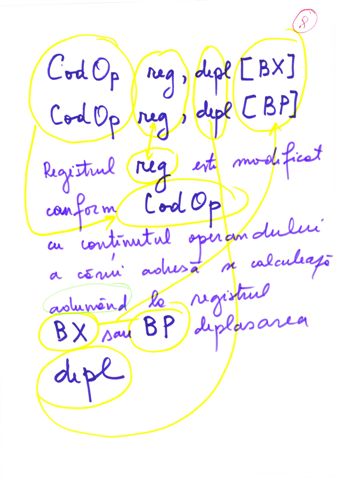 8
CodOp reg, depl [BX]
CodOp reg, depl [BP]
Registrul reg este modificat
conform CodOp
cu conținutul operandului
a cărui adresă se calculează
adunând la registrul
BX sau BP deplasarea
depl